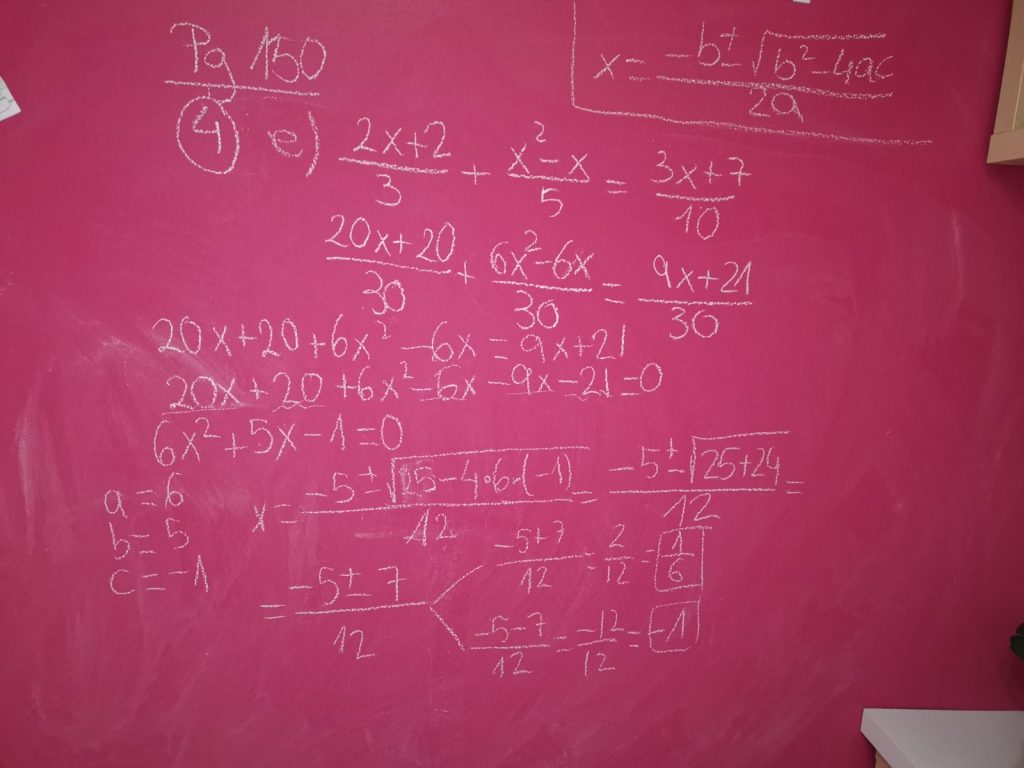 Pg 150
x = (-b ± √(b² - 4ac)) / 2a
④ e) (2x+2)/3 + (x²-x)/5 = (3x+7)/10
(20x+20)/30 + (6x²-6x)/30 = (9x+21)/30
20x+20+6x²-6x=9x+21
20x+20+6x²-6x-9x-21=0
6x²+5x-1=0
a=6
b=5
c=-1
x = (-5 ± √(25-4·6·(-1)))/12 = (-5 ± √(25+24))/12 =
= (-5 ± 7)/12
(-5+7)/12 = 2/12 = 1/6
(-5-7)/12 = -12/12 = -1